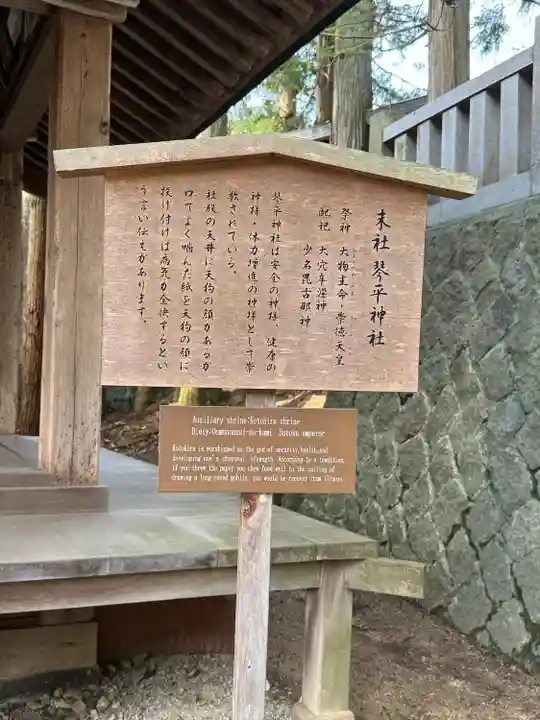 末社 琴平神社
祭神 大物主命・崇徳天皇
配祀 大穴牟遅神
少名毘古那神
琴平神社は安全の神様、健康の
神様、体力増進の神様として崇
敬されている。
社殿の天井に天狗の顔があるが
口でよく噛んだ紙を天狗の顔に
投げ付けけば病気が全快するとい
う言い伝えがあります。
Auxiliary shrine:Kotohira shrine
Diety:Oomononusi-no-kami Sutoku emperor
Kotohira is worshipped as the god of security,health,and
developing one's physical strength. According to a tradition,
if you throw the paper you chew food well to the ceiling of
drawing a long-nosed goblin, you would be recover from illness.